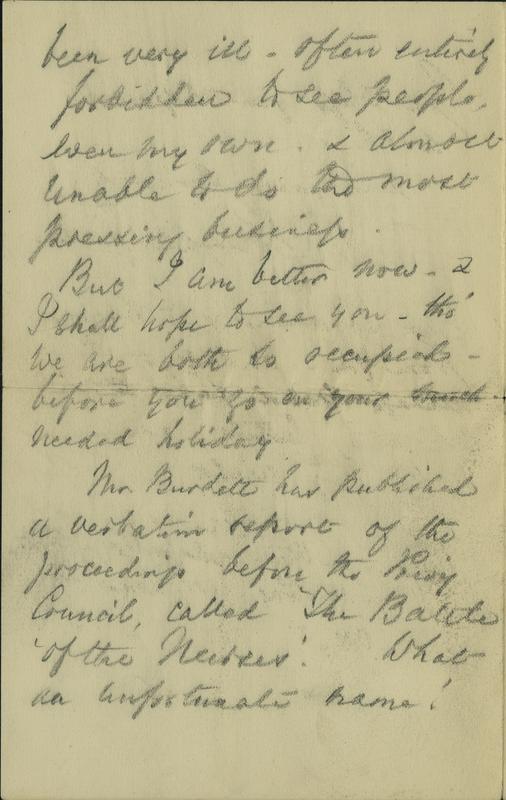 been very ill - often entirely
forbidden to see people,
even my own - & almost
unable to do the most
pressing business.
But I am better now - &
I shall hope to see you - tho'
we are both so occupied -
before you go on your much-
needed holiday
Mr. Burdett has published
a verbatim report of the
proceedings before the Privy
Council, called 'The Battle
'of the Nurses'. What
an unfortunate name!